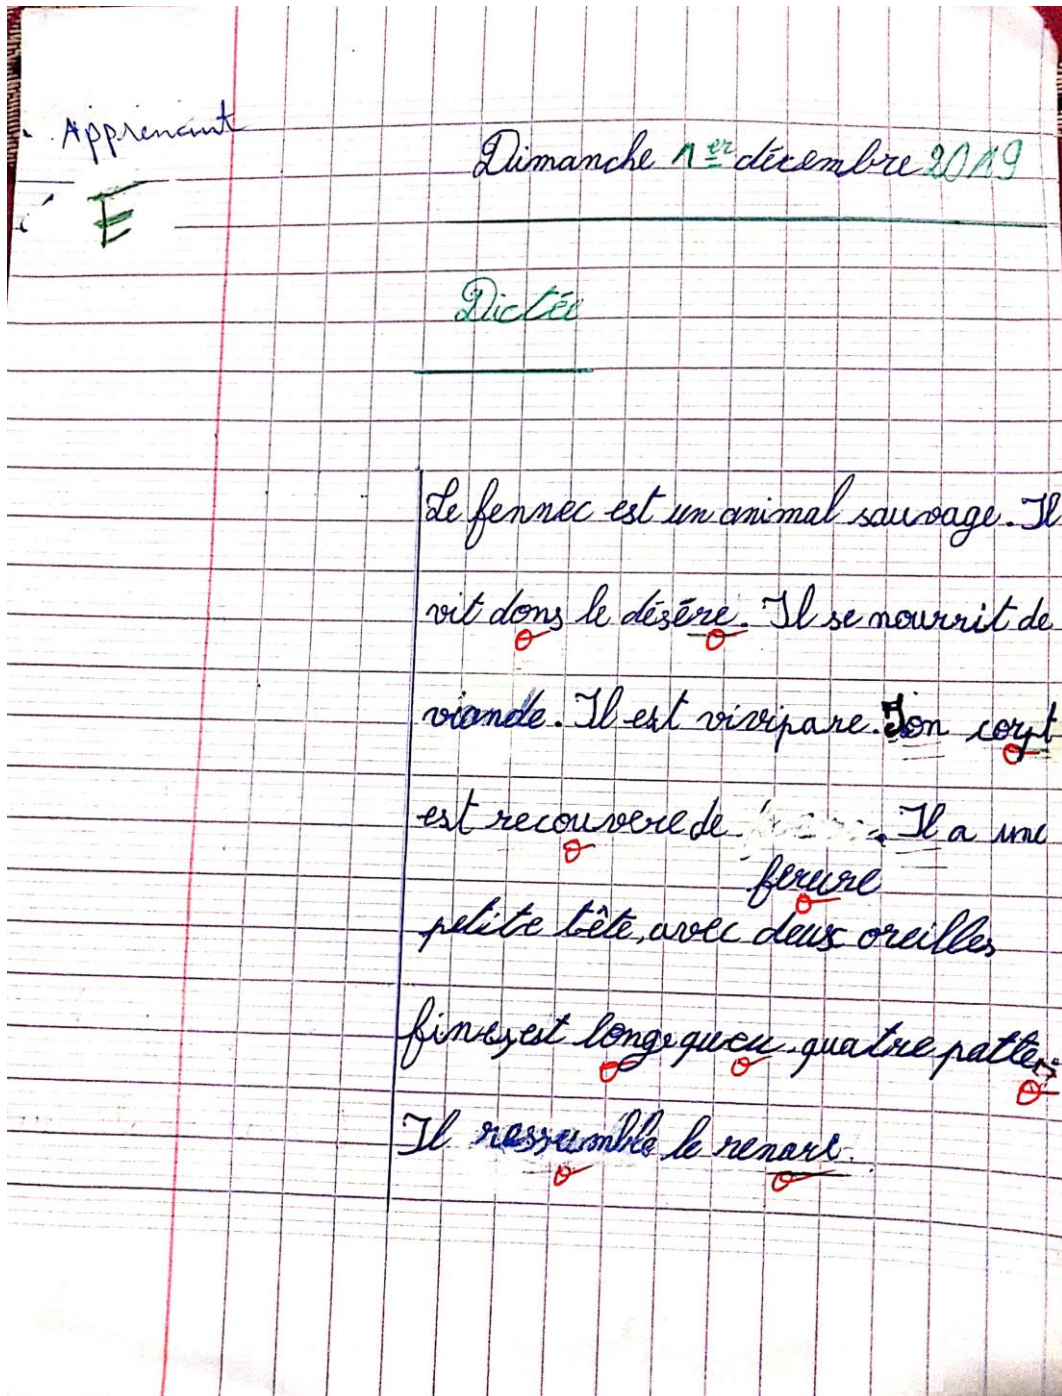 Apprenant
E
Dimanche 1er décembre 2019
Dictée
Le fennec est un animal sauvage. Il
vit dons le désére. Il se nourrit de
viande. Il est vivipare. Son corpt
est recouvere de . Il a une
ferure
petite tête, avec deux oreilles
fines, est longe queu quatre pattes
Il ressumble le renare.